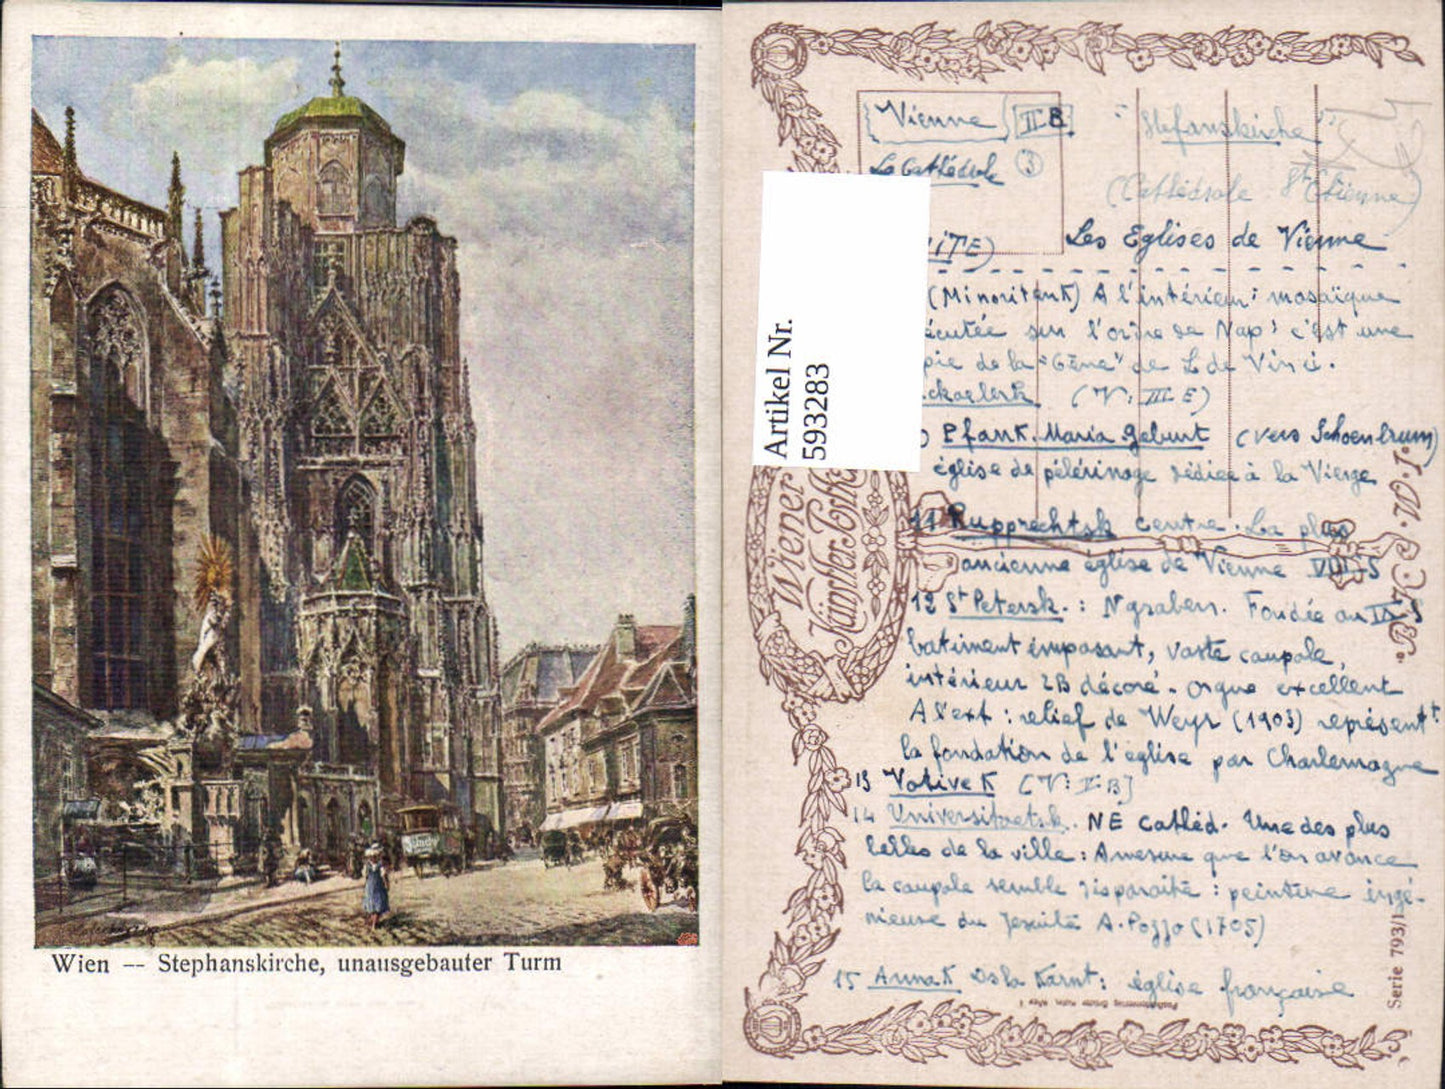 Wien — Stephanskirche, unausgebauter Turm
Vienne II B
La Cathédrale 3
"Stefanskirche"
(Cathédrale St Etienne)
ITE)
Les Eglises de Vienne
(MinoritenK) A l'intérieur: mosaïque
écutée sur l'ordre de Nap: c'est une
pie de la "Cène" de L de Vinci.
ckaelerk (V: III E)
Pfank. Maria Geburt (vers Schoenbrunn)
église de pélérinage dédiée à la Vierge
11 Rupprechtsk centre. La plus
ancienne église de Vienne VIII S
12 St Petersk. : Ngraben. Fondée au IX S
batiment imposant, vaste coupole,
intérieur TB décoré - orgue excellent
A l'ext : relief de Weyr (1903) représentt
la fondation de l'église par Charlemagne
13 VotiveK [V: II B]
14 Universitaetsk. NE cathéd. Une des plus
belles de la ville : A mesure que l'on avance
la coupole semble disparaitre : peinture ingé-
nieuse du Jésuite A. Pozzo (1705)
15 AnnaK Ds la Karnt : église française
Artikel Nr.
593283
Wiener
Künstler-Postk
B.K.W.I.
Serie 793/1